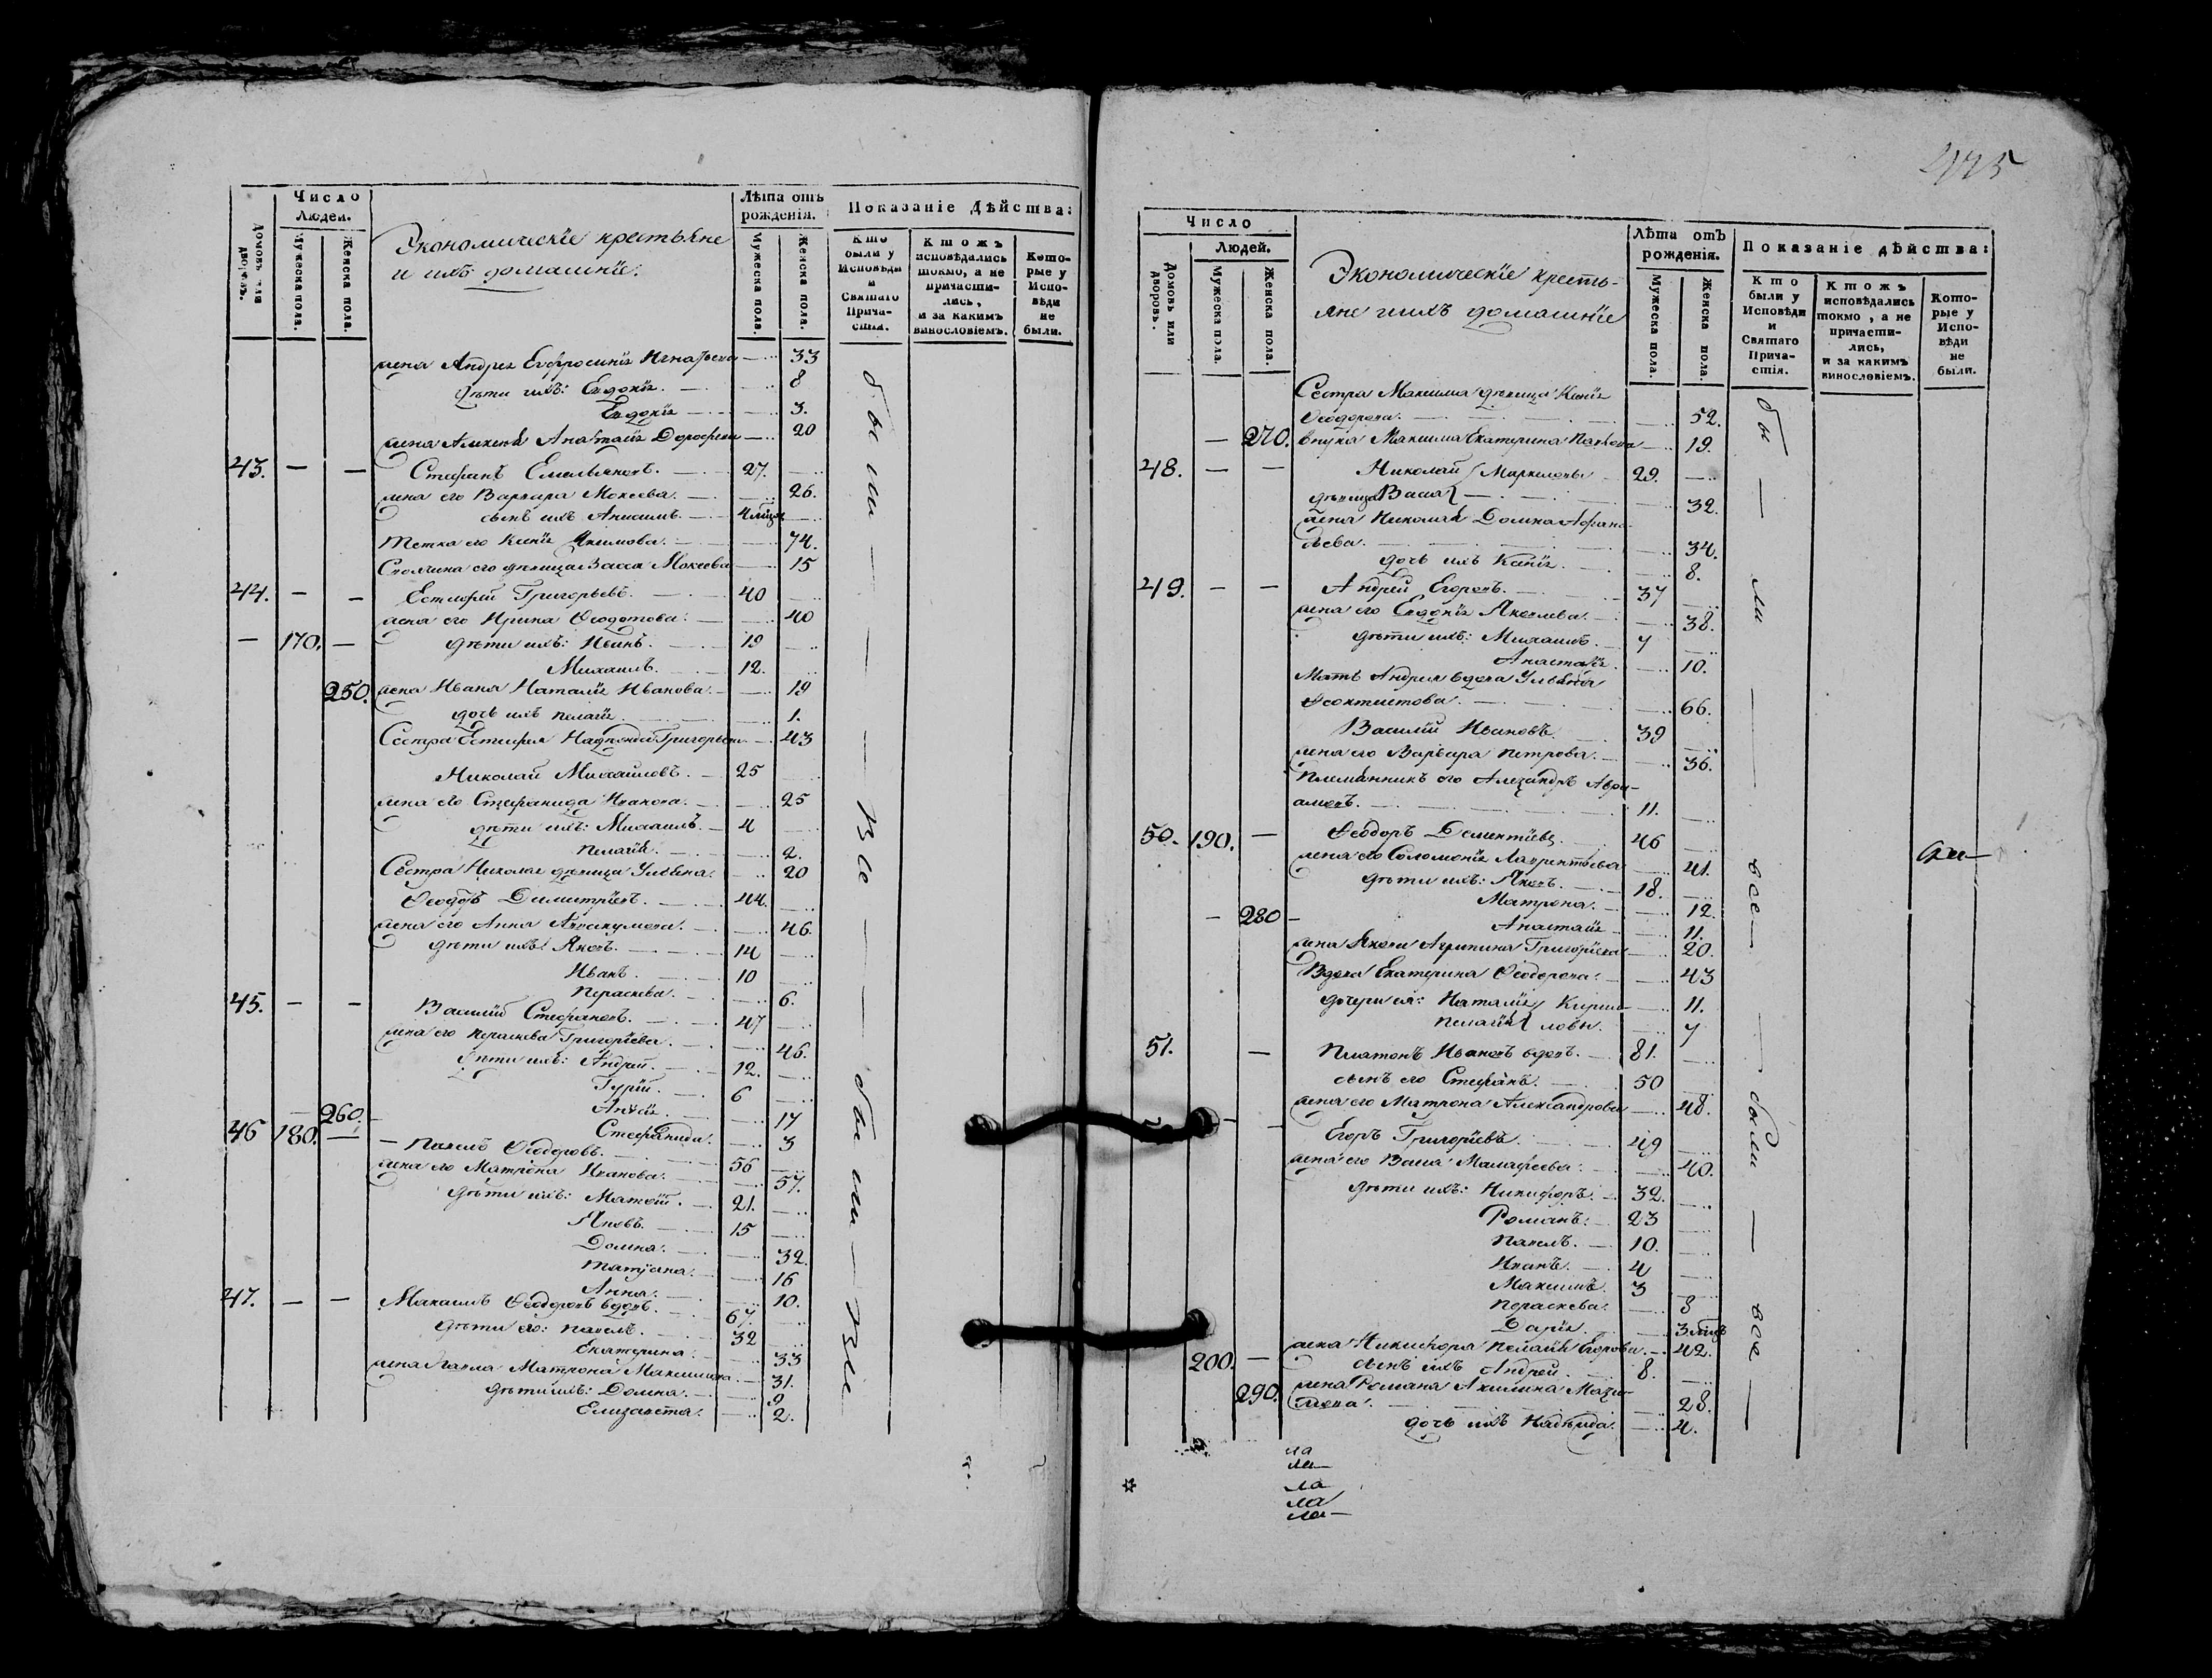 Число
Людей.
Домовъ или дворовъ.
Мужеска пола.
Женска пола.
Экономическіе крестьяне
и ихъ домашніе.
Лѣта отъ
рожденія.
Мужеска пола.
Женска пола.
Показаніе Дѣйства:
Кто
были у
Исповѣди
и
Святаго
Прича-
стія.
Ктожъ
исповѣдались
токмо, а не
причасти-
лись,
и за какимъ
винословіемъ.
Кото-
рые у
Испо-
вѣди
не
были.
жена Андрея Евфросинія Игнатьева 33
дѣти ихъ: Евдокія. 8
Евдокія 3.
жена Алексѣя Анастасія Дорофеева 20
43. — — Стефанъ Емельяновъ. 27.
жена его Варвара Мокеева. 26.
сынъ ихъ Анисимъ. 4 мцъ
Тетка его Ксенія Якимова. 74.
Своячина его дѣвица Васса Мокеева 15
44. — — Естифій Григорьевъ. 40
жена его Ирина Ѳеодотова. 40
— 170. — дѣти ихъ: Иванъ. 19
Михаилъ. 12.
250. жена Ивана Наталія Иванова. 19
дочь ихъ Пелагія. 1.
Сестра Естифія Григорьева 43
Николай Михайловъ. 25
жена его Стефанида Иванова. 25
дѣти ихъ: Михаилъ. 4
Пелагія. 2.
Сестра Николая дѣвица Ульяна. 20
Ѳеодоръ Димитріевъ. 44.
жена его Анна Аввакумова. 46.
дѣти ихъ: Яковъ. 14
Иванъ. 10
Параскева. 6.
45. — — Василій Стефановъ. 47
жена его Параскева Григоріева. 46.
дѣти ихъ: Андрей. 12.
Гурій. 6
260. 17
46 180. — Стефанида. 3
Павелъ Ѳеодоровъ. 56
жена его Матрона Иванова. 57.
дѣти ихъ: Матвій. 21.
Яковъ. 15
Домна. 32.
Татіана. 16
Анна. 10.
47. — — Максимъ Ѳеодоровъ вдовъ. 67.
дѣти его: Павелъ. 32
Екатерина. 33
жена Павла Матрона Максимова. 31.
дѣти ихъ: Домна. 9
Елизавета. 2.
были — все — были — все
475
Число
Людей.
Домовъ или дворовъ.
Мужеска пола.
Женска пола.
Экономическіе кресть-
яне и ихъ домашніе
Лѣта отъ
рожденія.
Мужеска пола.
Женска пола.
Показаніе дѣйства:
Кто
были у
Исповѣди
и
Святаго
Прича-
стія.
Ктожъ
исповѣдались
токмо, а не
причасти-
лись,
и за какимъ
винословіемъ.
Кото-
рые у
Испо-
вѣди
не
были.
Сестра Максима дѣвица Ксенія
Ѳеодорова. 52.
— 270. внука Максима Екатерина Павлова 19.
48. — — Николай Маркеловы 29.
дѣвица Васса 32.
жена Николая Домна Афана-
сьева. 34.
дочь ихъ Ксенія. 8.
49. — — Андрей Егоровъ. 37
жена его Евдокія Яковлева. 38.
дѣти ихъ: Михаилъ. 7
Анастасія. 10.
Мать Андрея вдова Ульяна
Ѳеоктистова. 66.
Василій Ивановъ 39
жена его Варвара Петрова. 36.
Племянникъ его Алезандръ Авра-
амовъ. 11.
50. 190. — Ѳеодоръ Дементіевъ 46
жена его Соломонія Лаврентьева 41.
дѣти ихъ: Яковъ. 18.
Матрона. 12.
— 280 — Анастасія 11.
жена Якова Агрипина Григоріева 20.
Вдова Екатерина Ѳеодорова. 43
дочери ея: Наталія Кирил- 11.
Пелагія ловы. 7
51. — Платонъ Ивановъ вдовъ. 81.
сынъ его Стефанъ. 50
жена его Матрона Александрова 48.
Егоръ Григоріевъ. 49
жена его Васса Малафеева. 40.
дѣти ихъ: Никифоръ. 32.
Романъ. 23
Павелъ. 10.
Иванъ. 4
Максимъ. 3
Параскева. 8
Дарія. 3 мцъ
жена Никифора Пелагія Егорова. 42.
200. — сынъ ихъ Андрей. 8.
290. жена Романа Акилина Мази-
мова. 28.
дочь ихъ Надежда. 4.
бы — ли — все — были — все —
ла
ла
ла
ла
ла